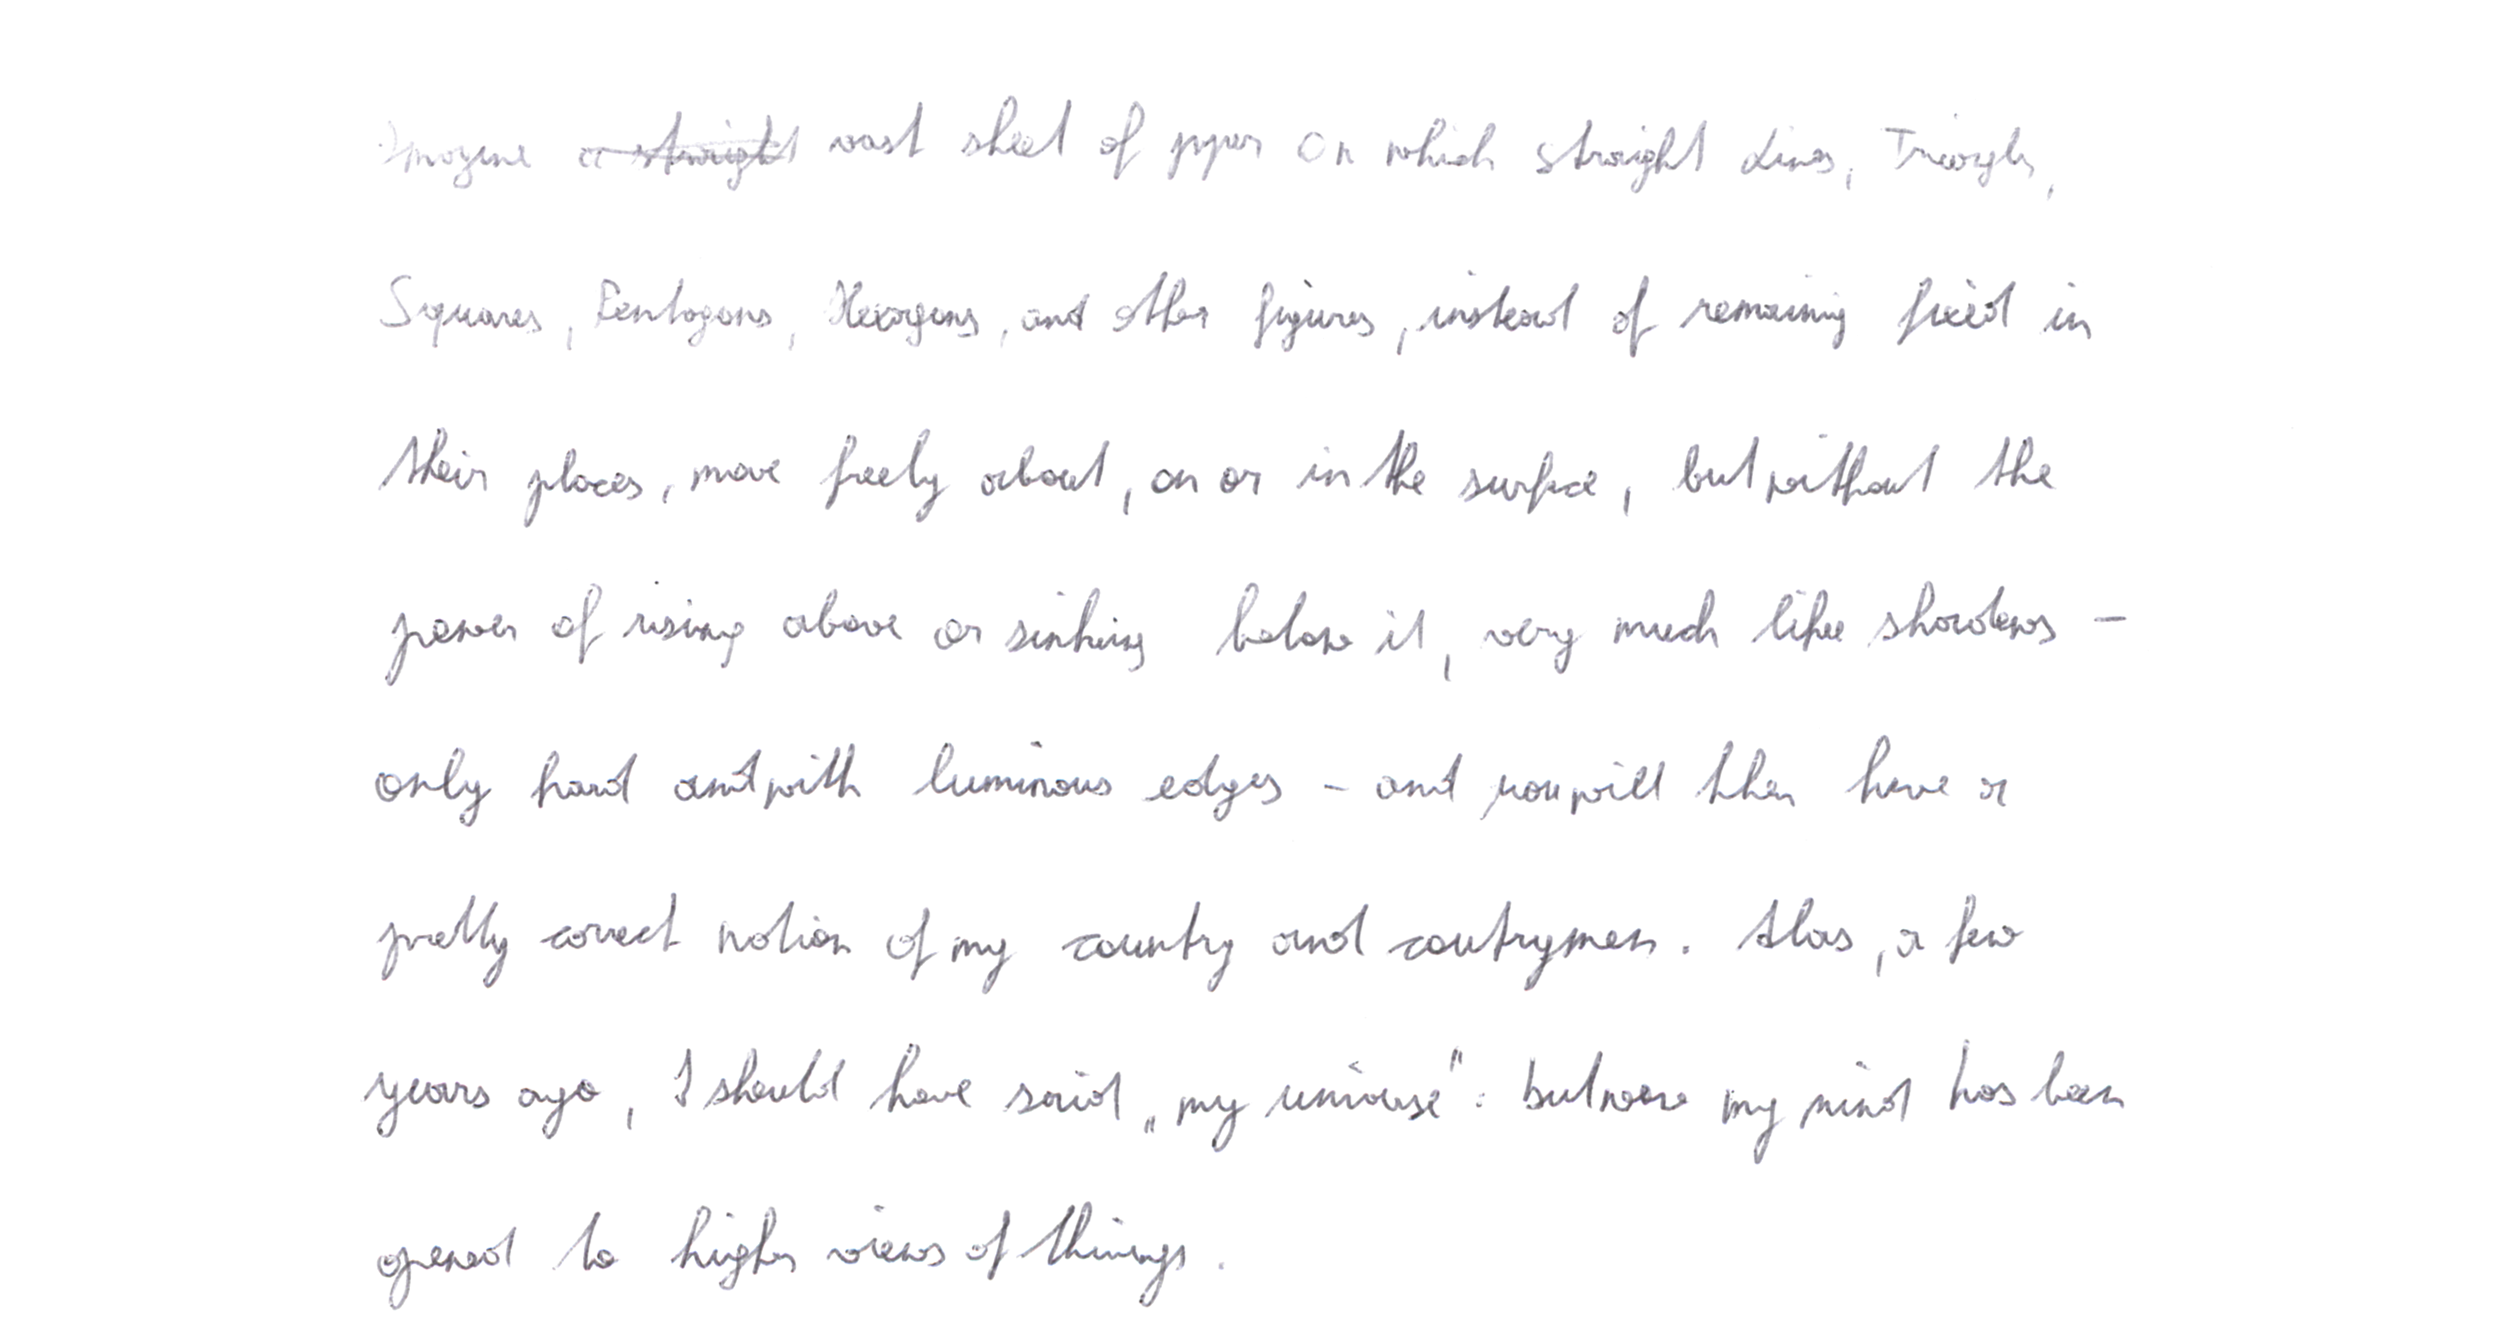 Imagine a straight vast sheet of paper on which straight Lines, Triangles,
Squares, Pentagons, Hexagons, and other figures, instead of remaining fixed in
their places, move freely about, on or in the surface, but without the
power of rising above or sinking below it, very much like shadows –
only hard and with luminous edges – and you will then have a
pretty correct notion of my country and coutrymen. Alas, a few
years ago, I should have said „my universe": but now my mind has been
opened to higher views of things.